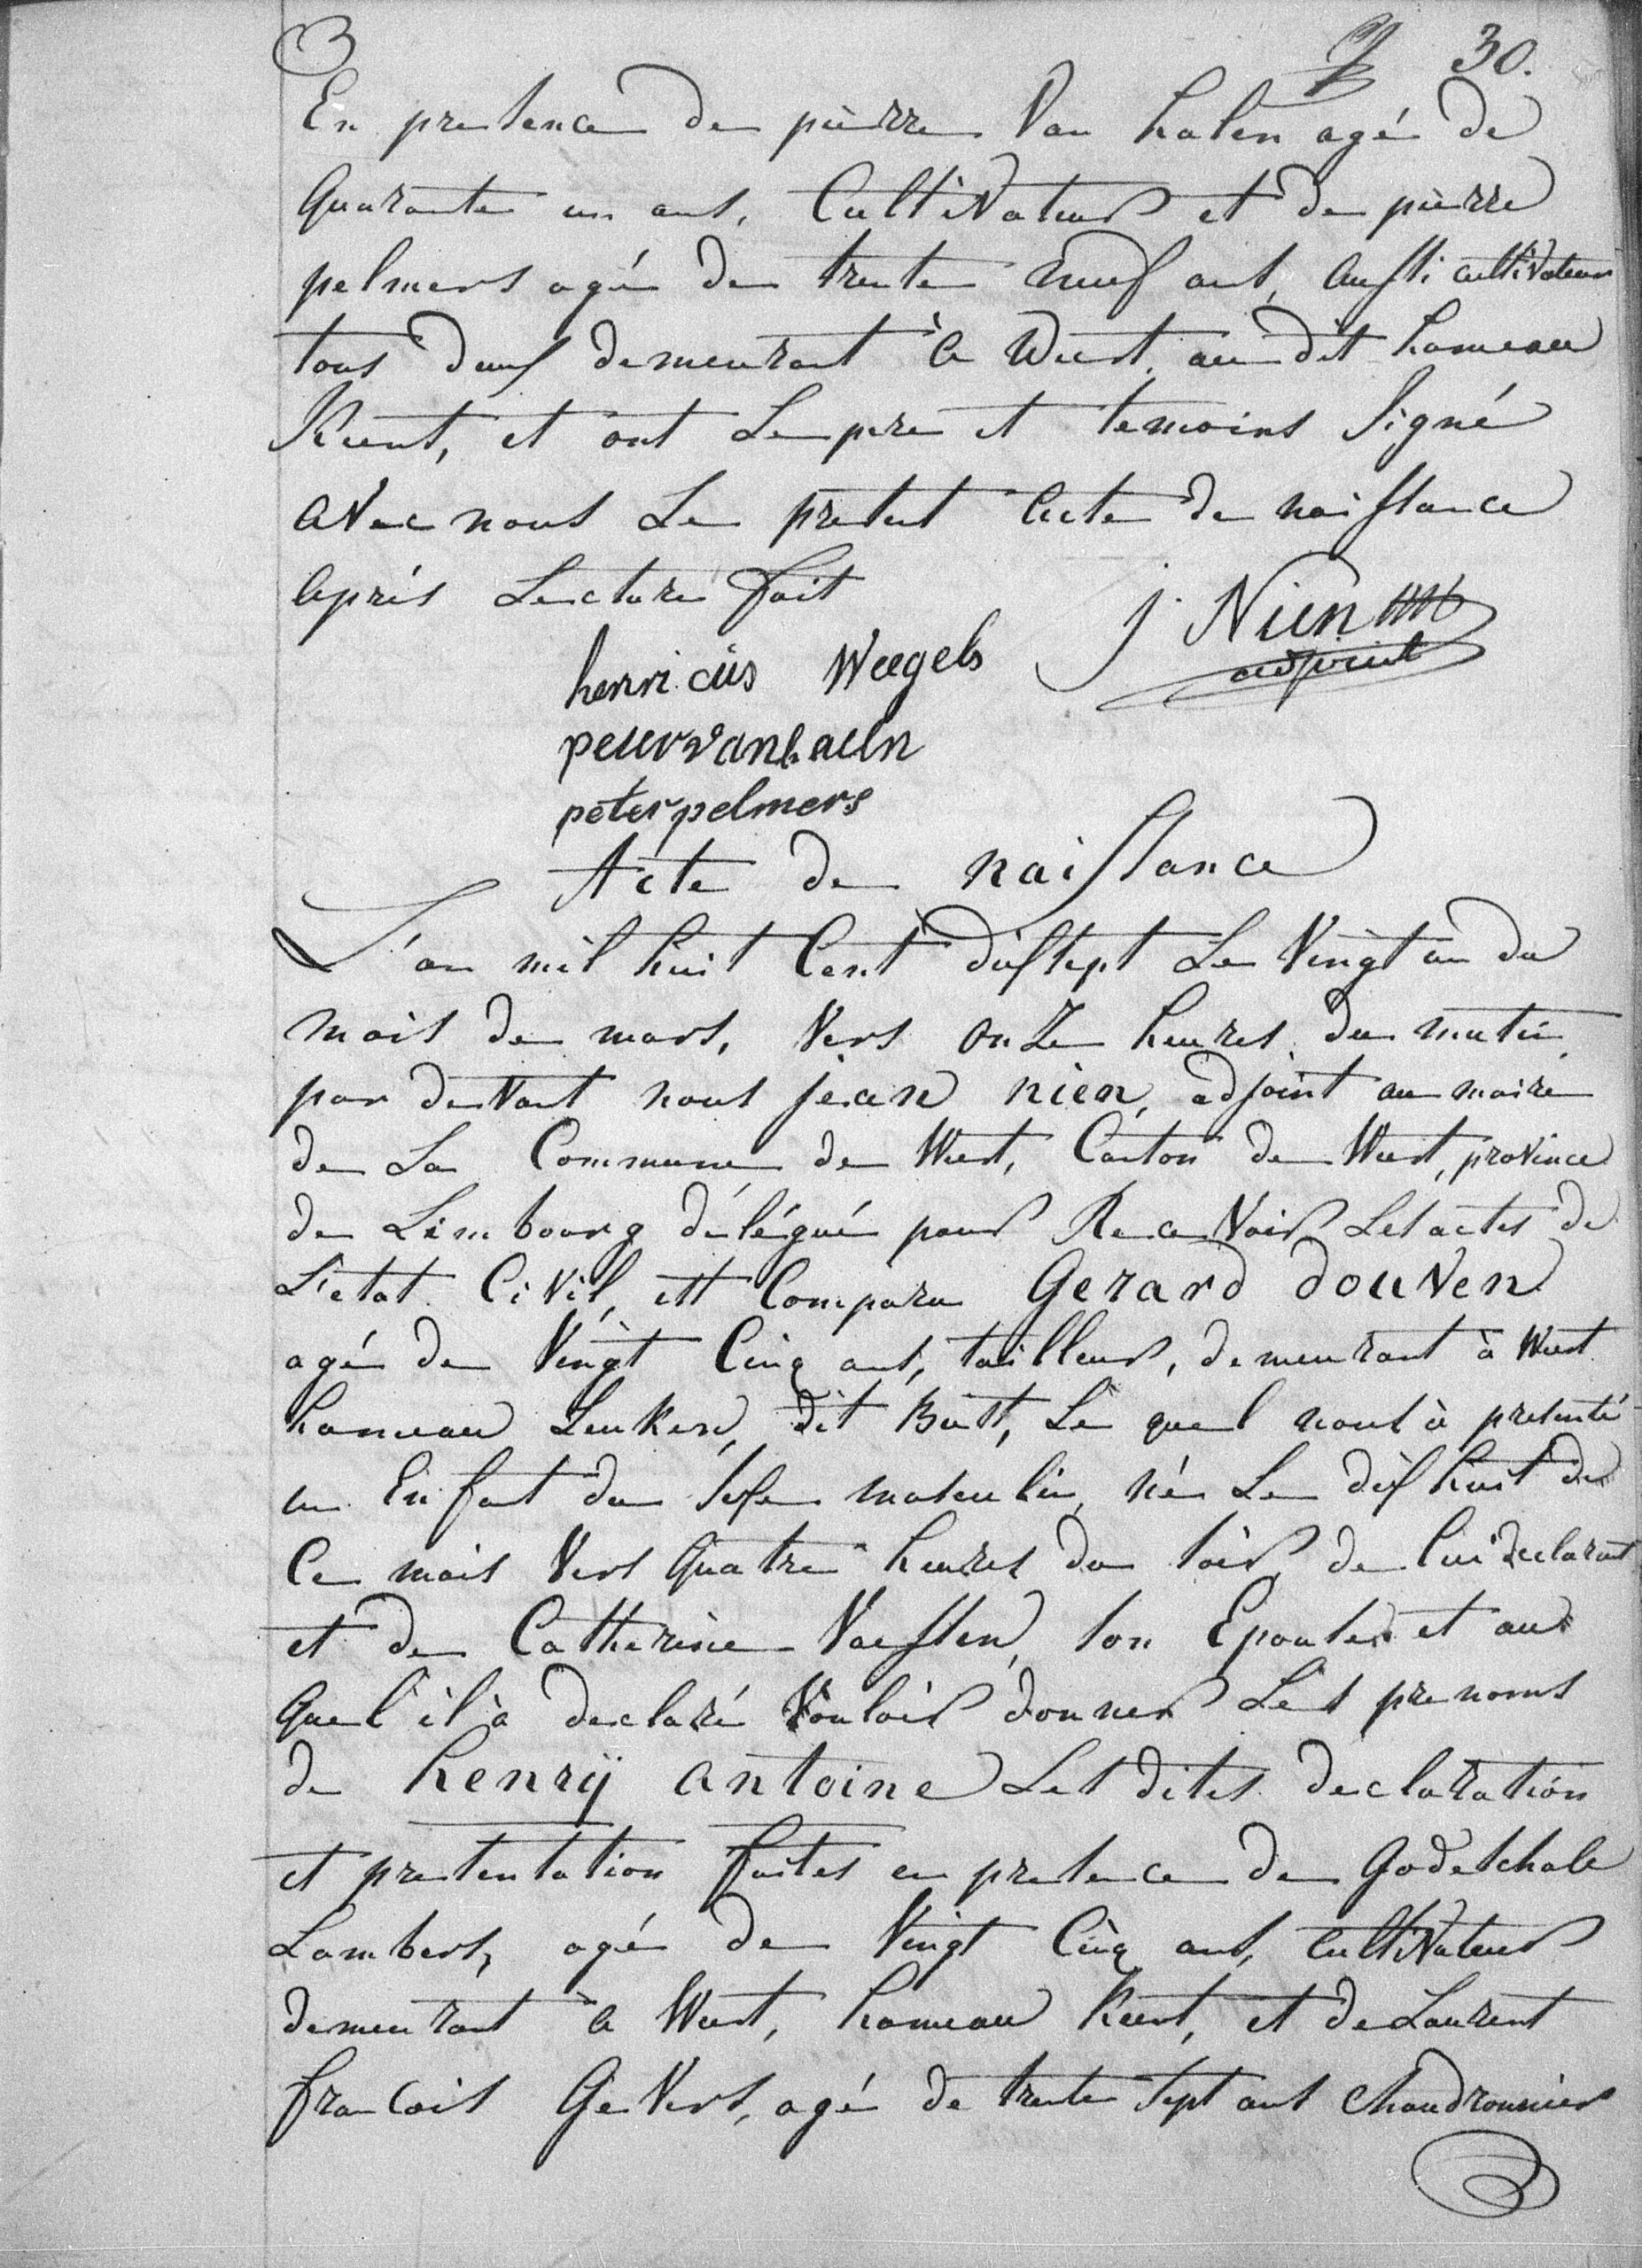 30.
En presence de pierre Van halen agé de
Quarante un ans, Cultivateur et de pierre
pelmers agé de trente neuf ans, aussi cultivateur
tous deux demeurant à Weert, au dit hameau
Keent, et ont Le pere et temoins signé
avec nous Le present acte de naissance
après Lecture fait
henricus Weegels J. Nien
adjoint
peter pelmers
Acte de naissance
L'an mil huit Cent dixsept Le Vingt un du
mois de mars, Vers onze heures du matin,
par devant nous jean nien, adjoint au maire
de La Commune de Weert, Canton de Weert, province
de Limbourg délégué pour Recevoir Les actes de
L'etat Civil, est Comparu Gerard douven
agé de Vingt Cinq ans, tailleur, demeurant à Weert
hameau Leuken, dit Le quel nous à presenté
un Enfant du sexe masculin, né Le dix huit de
Ce mois Vers Quatre heures du soir, de lui declarant
et de Catherine Vaessen, son Epouse et au
Quel il à declaré Vouloir donner Les prenoms
de henrij antoine Les dites declaration
et presentation faites en presence de Godeschale
Lambers, agé de Vingt Cinq ans, Cultivateur
demeurant à Weert, hameau Keent, et de Laurent
francois Gevers, agé de trente sept ans Chaudronnier